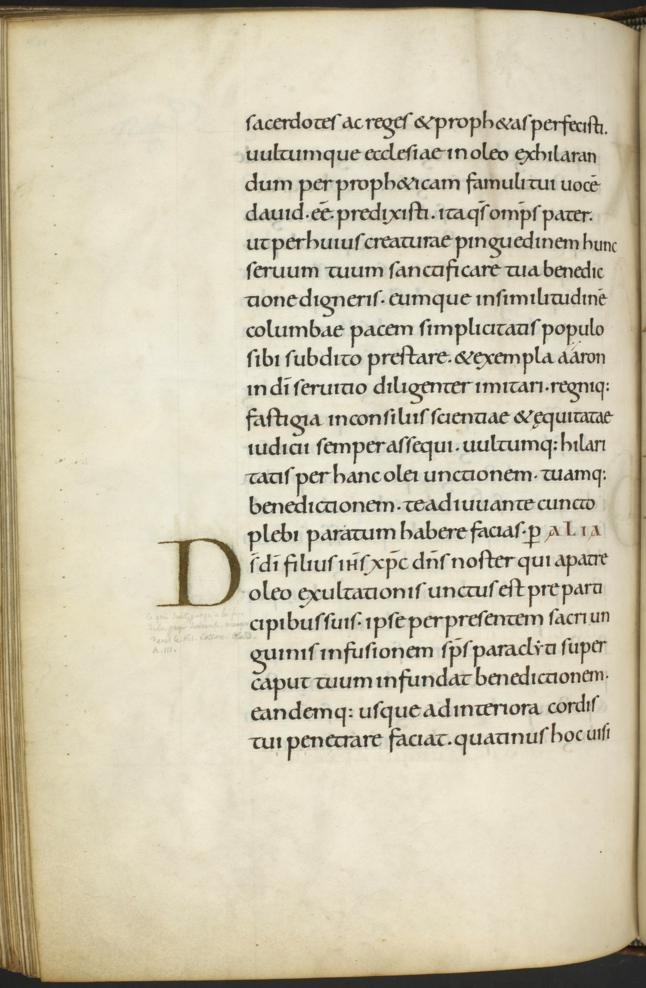 sacerdotes ac reges & proph&as perfecisti.
uultumque ecclesiae in oleo exhilaran
dum per proph&icam famuli tui uocē
dauid. eē. predixisti. ita qs̄ omp̄s pater.
ut per huius creaturae pinguedinem hunc
seruum tuum sanctificare tua benedic
tione digneris. eumque in similitudinē
columbae pacem simplicitatis populo
sibi subdito prestare. & exempla aaron
in dī seruitio diligenter imitari. regniq:
fastigia in consiliis scientiae & ęquitatae
iudicii semper assequi. uultumq: hilari
tatis per hanc olei unctionem. tuamq:
benedictionem. te adiuuante cuncto
plebi paratum habere facias. ꝑ ALIA
Ds̄ dī filius ihs̄ xp̄c dn̄s noster qui a patre
oleo exultationis unctus est pre parti
cipibus suis. ipse per presentem sacri un
guinis infusionem sp̄s paraclyti super
caput tuum infundat benedictionem.
eandemq: usque ad interiora cordis
tui penetrare faciat. quatinus hoc uisi